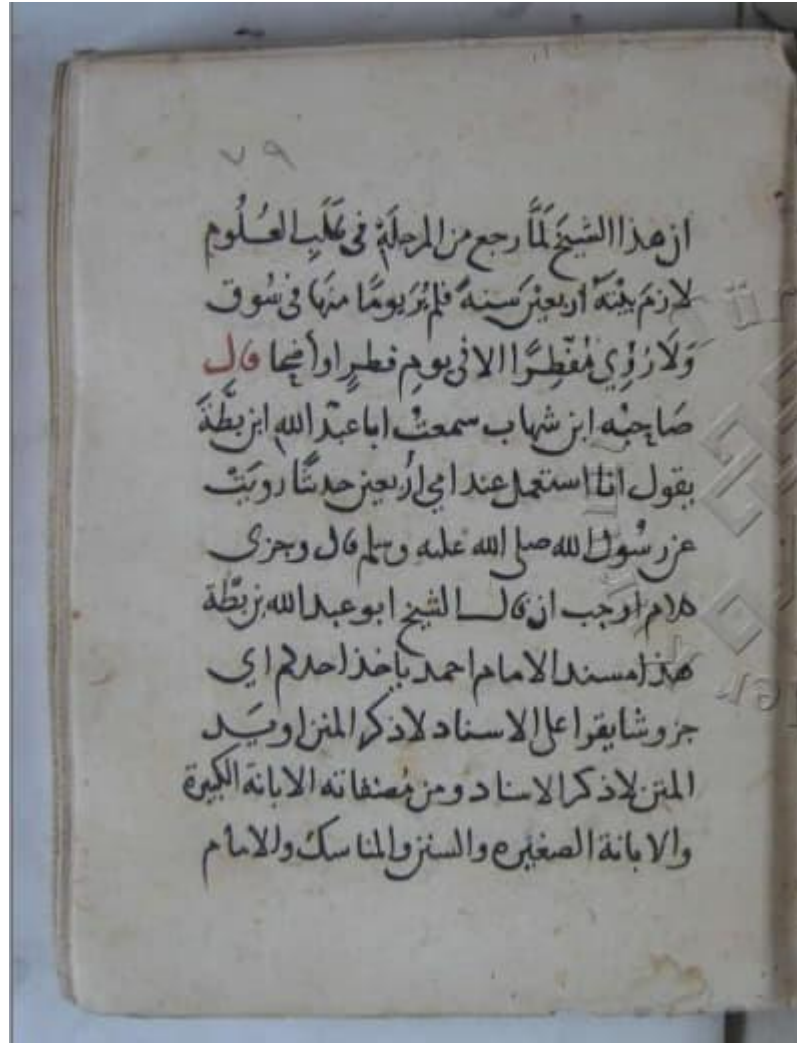 ٧٩
ان هذا الشيخَ لَمَّا رجع من الرحلة في طَلَبِ العُلُومِ
لازمَ بيْتَهُ اربعينَ سنة فلم يُرَ يومًا منها في سُوق
وَلَا رُؤِي مُفْطِرًا الا في يوم فطرٍ اوأضحا قال
صَاحِبُه ابن شهاب سمعتُ ابا عبْد الله ابن بطَّةَ
يقول انا استعمل عند امي اربعين حديثًا رويتْ
عن رسُول الله صلى الله عليه وسلم قال وجزى
ان قال الشيخ ابو عبد الله بن بطَّة
هذا مسند الامام احمد ياخذ احدكم اي
جزو شا يقرا على الاسناد لاذكر المتن او
المتن لاذكر الاسناد ومن مُصنفاته الابانة الكبيرة
والابانة الصغيره والسنن والمناسك والامام